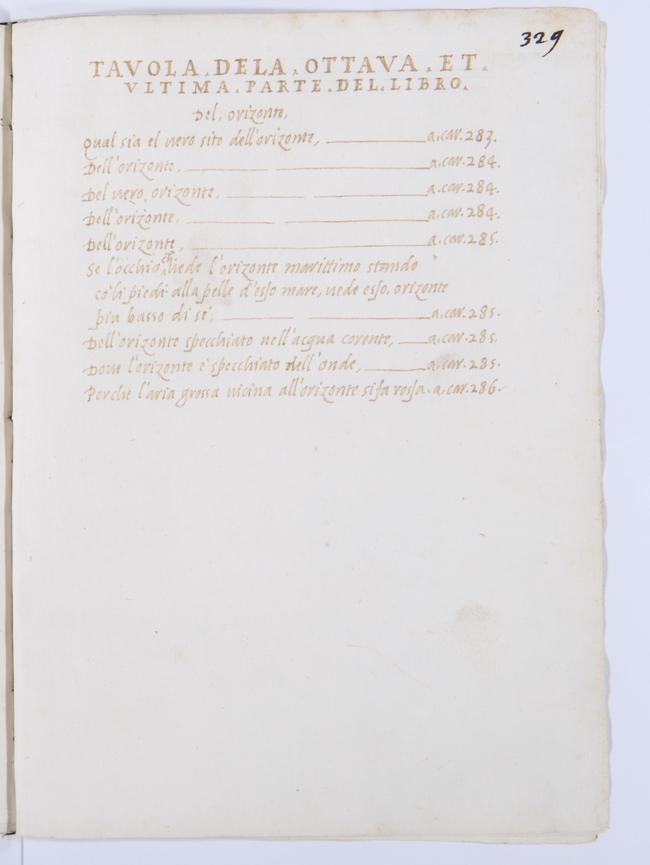 329
TAVOLA.DELA.OTTAVA.ET.
VLTIMA.PARTE.DEL.LIBRO.
Del. orizonte,
Qual sia el uero sito dell'orizonte, a.car.283.
Dell'orizonte, a.car.284.
Del uero, orizonte, a.car.284.
Dell'orizonte, a.car.284.
Dell'orizonte, a.car.285.
Se l'occhio, uede l'orizonte marittimo stando
co'li piedi alla pelle d'esso mare, uede esso, orizonte
piu basso di se', a.car.285.
Dell'orizonte specchiato nell'acqua corente, a.car.285.
Doue l'orizonte e' specchiato nell'onde, a.car.285.
Perche l'aria grossa uicina all'orizonte si fa rossa. a.car.286.